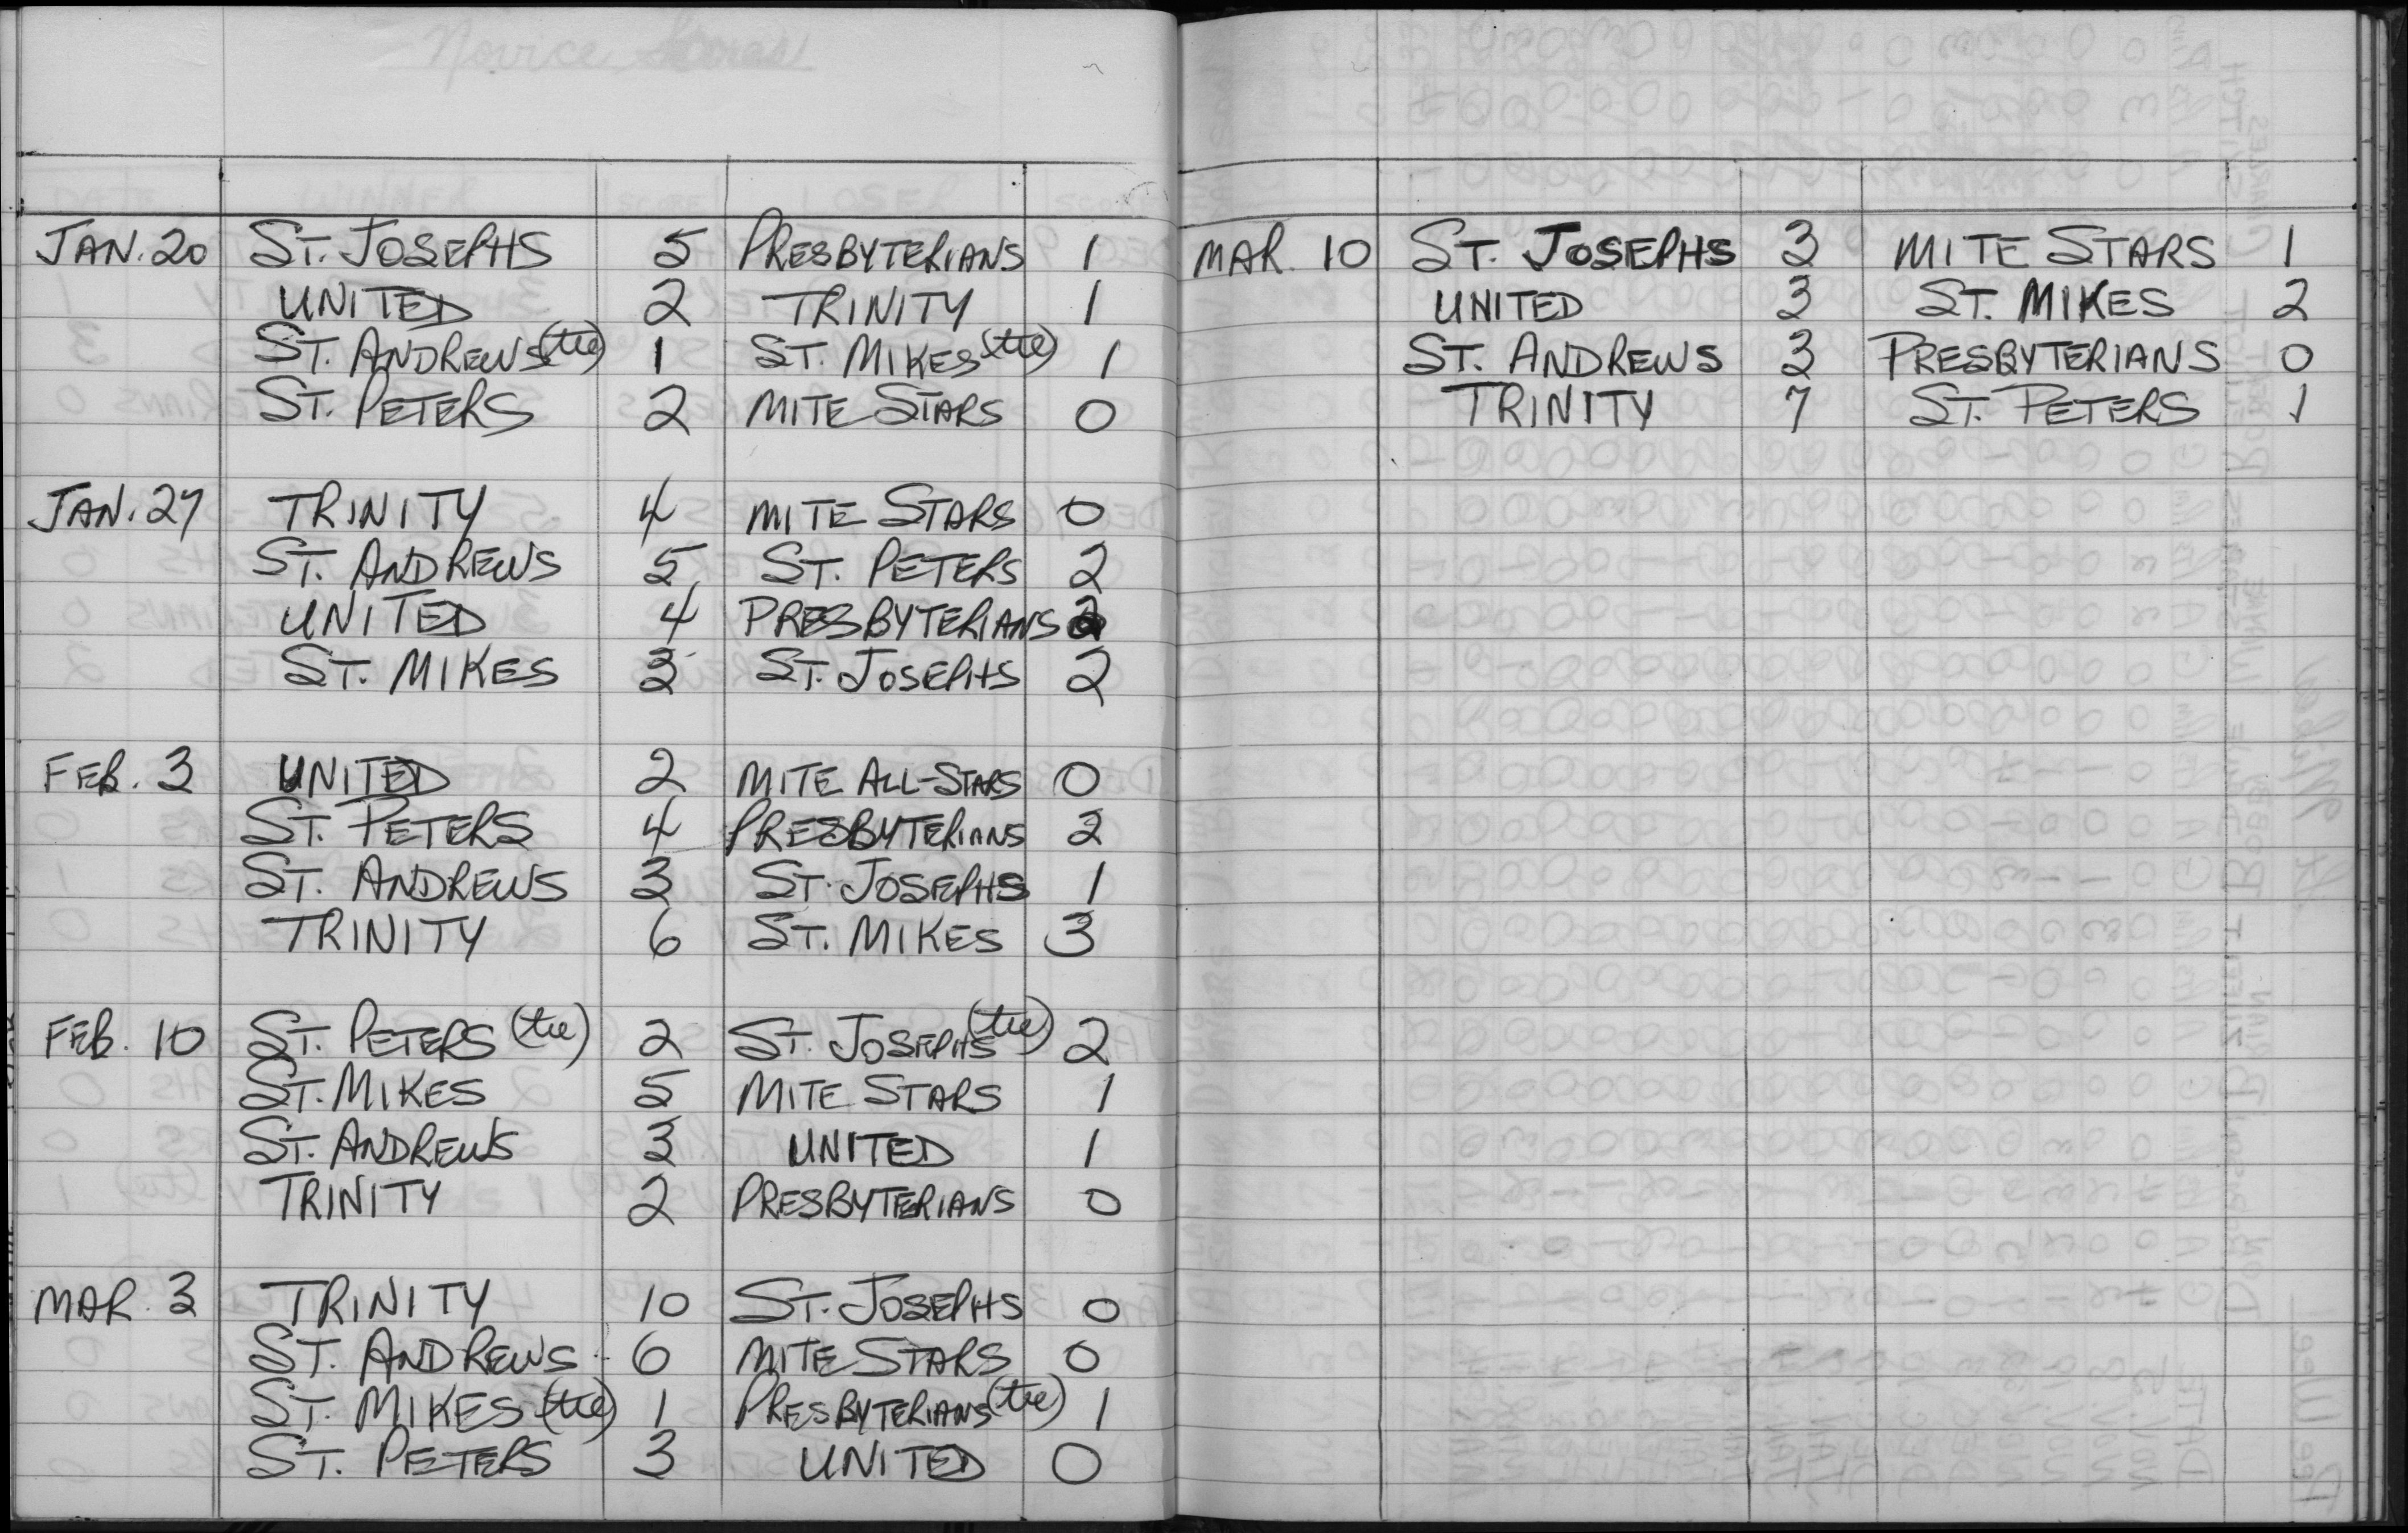 JAN. 20 ST. JOSEPHS 5 PRESBYTERIANS 1
UNITED 2 TRINITY 1
ST. ANDREWS (tie) 1 ST. MIKES (tie) 1
ST. PETERS 2 MITE STARS 0
JAN. 27 TRINITY 4 MITE STARS 0
ST. ANDREWS 5 ST. PETERS 2
UNITED 4 PRESBYTERIANS 2
ST. MIKES 3 ST. JOSEPHS 2
FEB. 3 UNITED 2 MITE ALL-STARS 0
ST. PETERS 4 PRESBYTERIANS 2
ST. ANDREWS 3 ST. JOSEPHS 1
TRINITY 6 ST. MIKES 3
FEB. 10 ST. PETERS (tie) 2 ST. JOSEPHS (tie) 2
ST. MIKES 5 MITE STARS 1
ST. ANDREWS 3 UNITED 1
TRINITY 2 PRESBYTERIANS 0
MAR. 3 TRINITY 10 ST. JOSEPHS 0
ST. ANDREWS 6 MITE STARS 0
ST. MIKES (tie) 1 PRESBYTERIANS (tie) 1
ST. PETERS 3 UNITED 0
MAR. 10 ST. JOSEPHS 3 MITE STARS 1
UNITED 3 ST. MIKES 2
ST. ANDREWS 3 PRESBYTERIANS 0
TRINITY 7 ST. PETERS 1